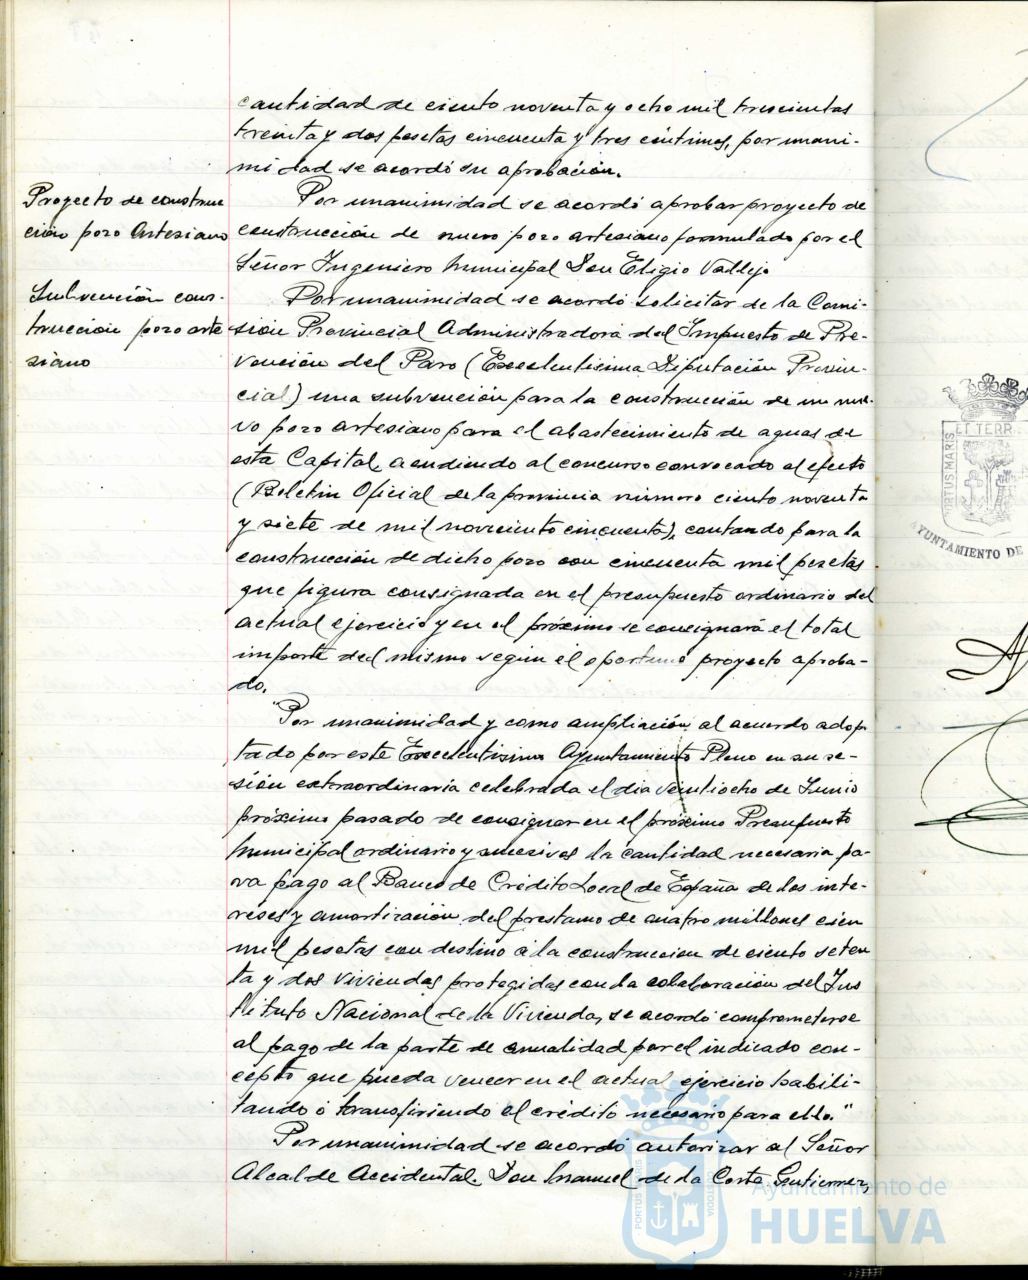 cantidad de ciento noventa y ocho mil trescientas
treinta y dos pesetas cincuenta y tres céntimos, por unani-
midad se acordó su aprobación.
Proyecto de construc
ción pozo Artesiano
Por unanimidad se acordó aprobar proyecto de
construcción de nuevo pozo artesiano formulado por el
Señor Ingeniero Municipal Don Eligio Vallejo
Subvención cons-
trucción pozo arte
siano
Por unanimidad se acordó solicitar de la Comi-
sión Provincial Administradora del Impuesto de Pre-
vención del Paro (Excelentísima Diputación Provin-
cial) una subvención para la construcción de un nue-
vo pozo artesiano para el abastecimiento de aguas de
esta Capital, acudiendo al concurso convocado al efecto
(Boletín Oficial de la provincia número ciento noventa
y siete de mil noveciento cincuenta), contando para la
construcción de dicho pozo con cincuenta mil pesetas
que figura consignada en el presupuesto ordinario del
actual ejercicio y en el próximo se consignará el total
importe del mismo según el oportuno proyecto aproba-
do.
"Por unanimidad y como ampliación al acuerdo adop
tado por este Excelentísimo Ayuntamiento Pleno en su se-
sión extraordinaria celebrada el dia veintiocho de Junio
próximo pasado de consignar en el próximo Presupuesto
Municipal ordinario y sucesivos la cantidad necesaria pa-
ra pago al Banco de Crédito Local de España de los inte-
reses y amortización del prestamo de cuatro millones cien
mil pesetas con destino a la construccion de ciento seten
ta y dos viviendas protegidas con la colaboración del Ins
tituto Nacional de la Vivienda, se acordó comprometerse
al pago de la parte de anualidad por el indicado con-
cepto que pueda vencer en el actual ejercicio habili-
tando ó transfiriendo el crédito necesario para ello."
Por unanimidad se acordó autorizar al Señor
Alcalde Accidental. Don Manuel de la Corte Gutierrez,
PORTUS MARIS
ET TERR
AYUNTAMIENTO DE
PORTUS MARIS
CUSTODIA
Ayuntamiento de
HUELVA